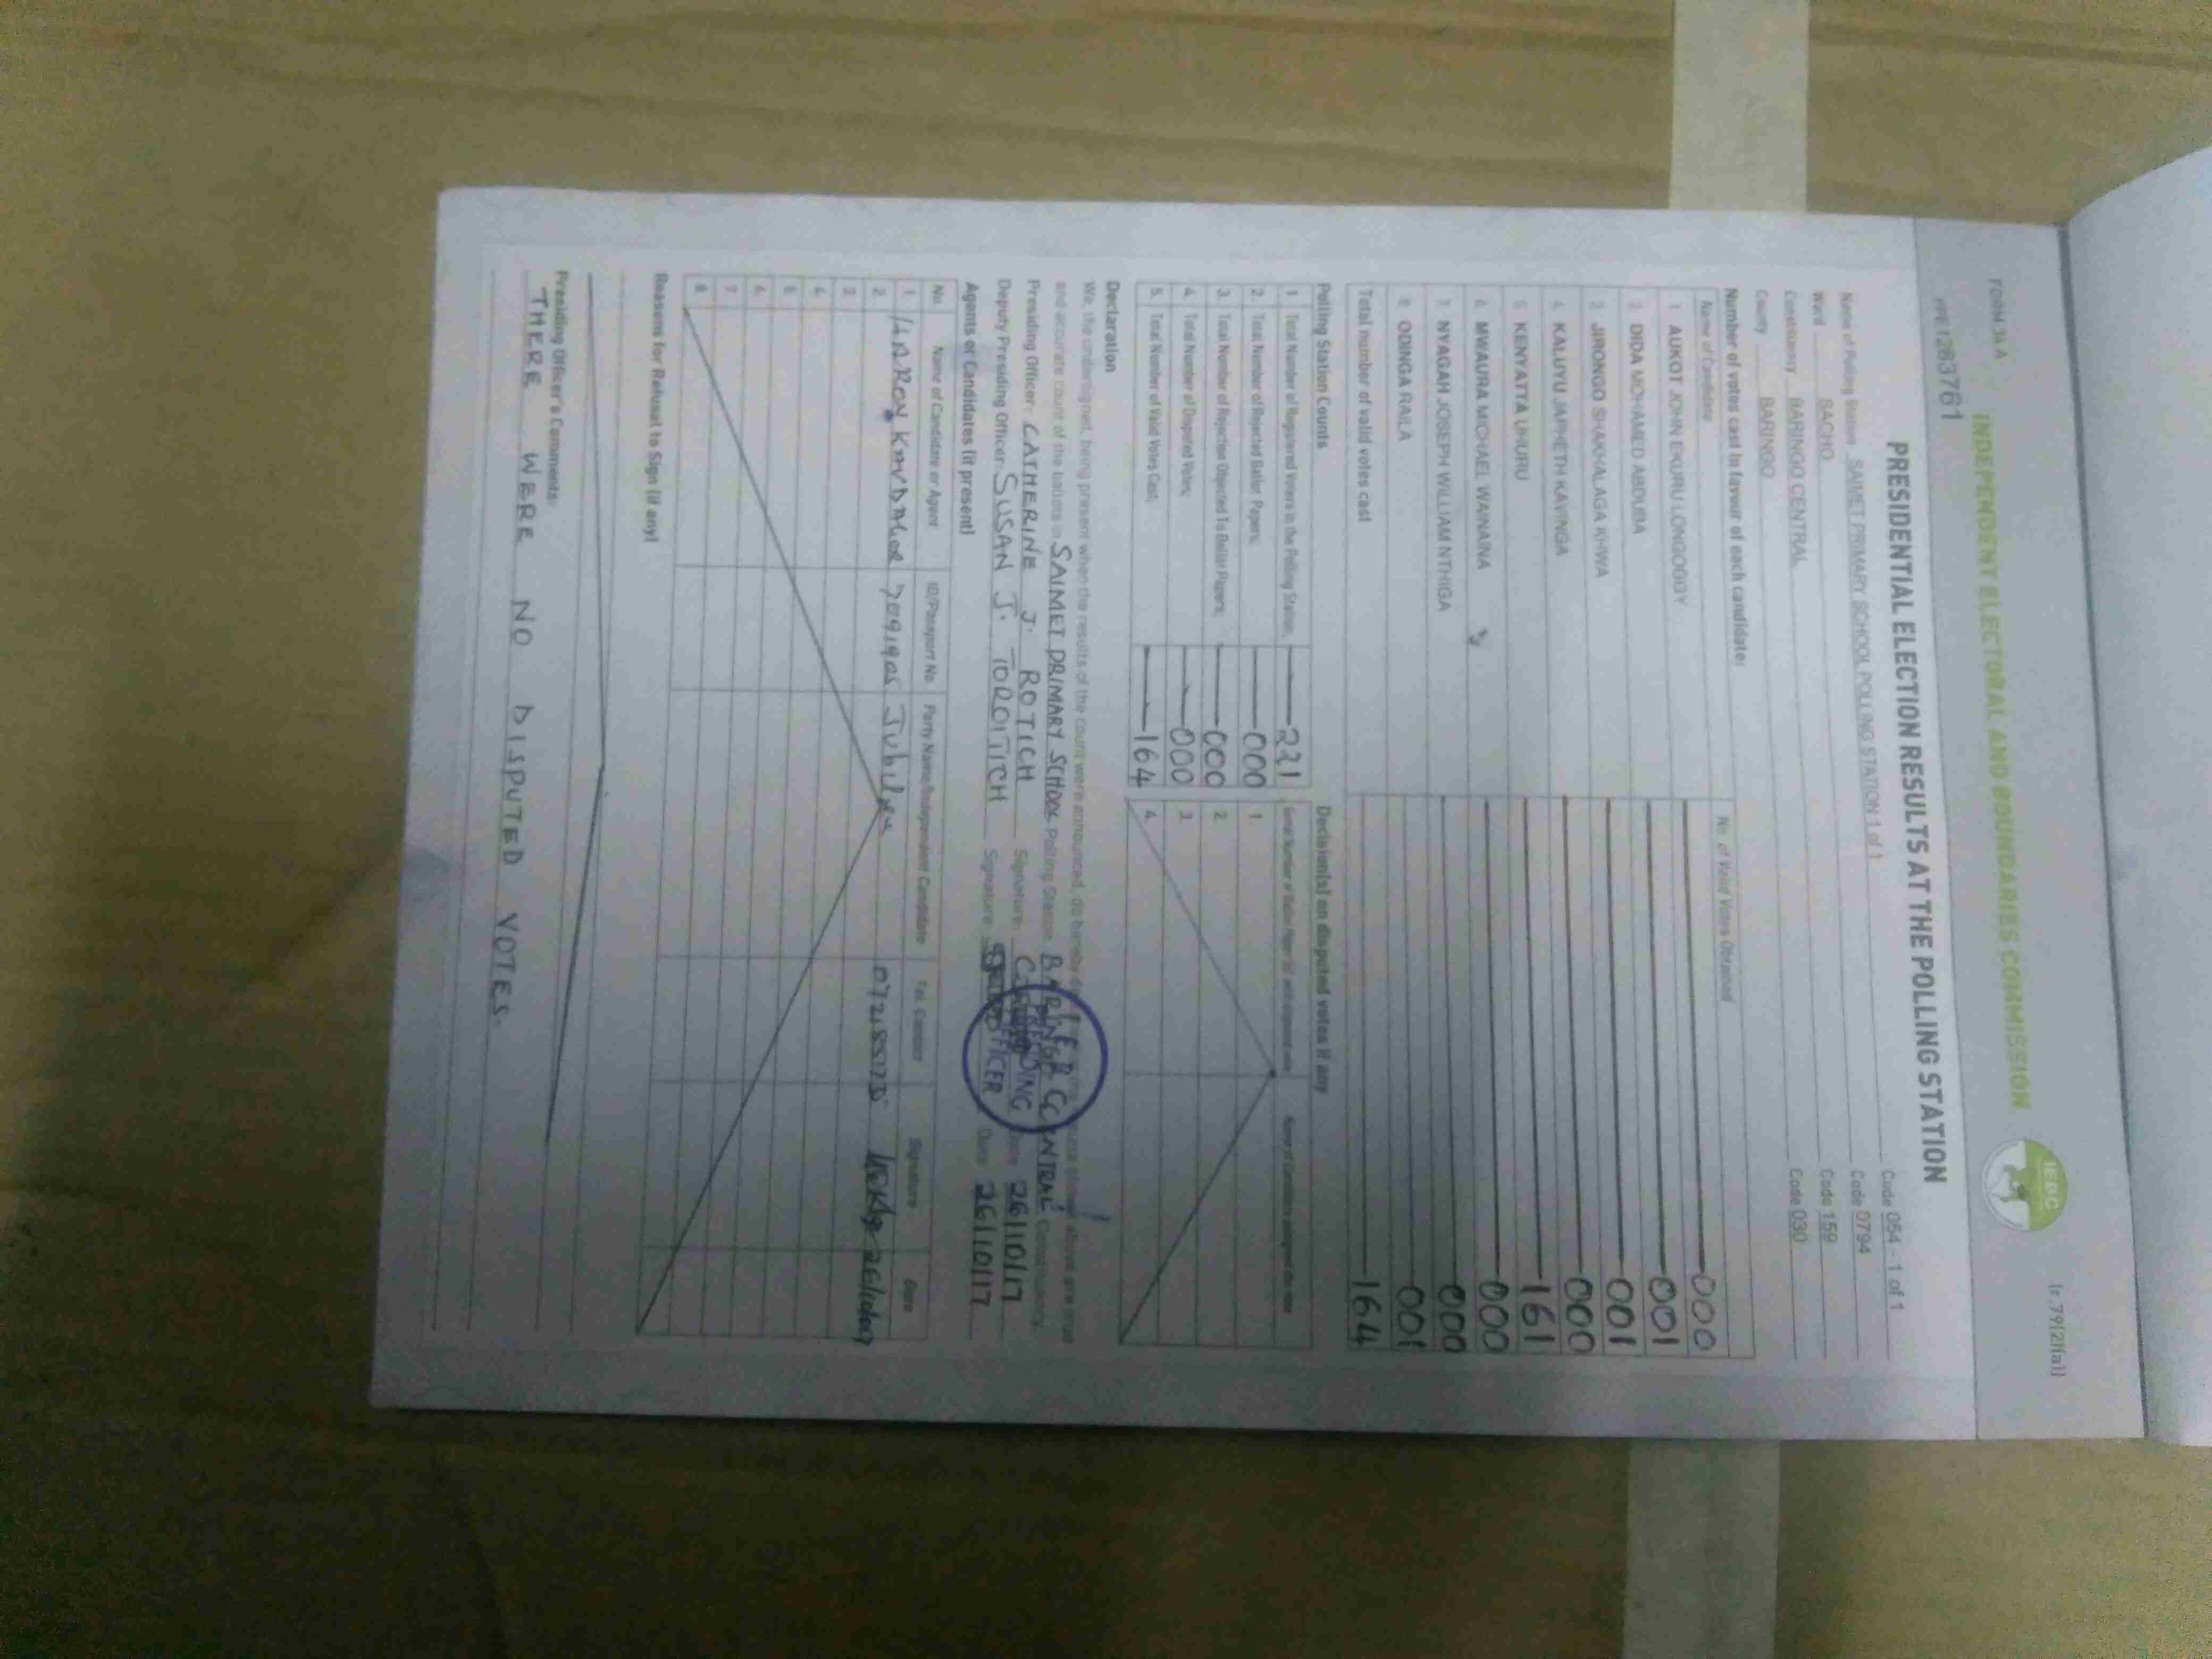 FORM 34 A
(r.79(2)(a))
INDEPENDENT ELECTORAL AND BOUNDARIES COMMISSION
IEBC
PPE1263761
PRESIDENTIAL ELECTION RESULTS AT THE POLLING STATION
Name of Polling Station SAIMET PRIMARY SCHOOL POLLING STATION 1 of 1 Code 054 - 1 of 1
Ward SACHO Code 0794
Constituency BARINGO CENTRAL Code 159
County BARINGO Code 030
Number of votes cast in favour of each candidate:
Name of Candidate No. of Valid Votes Obtained
1. AUKOT JOHN EKURU LONGOGGY 000
2. DIDA MOHAMED ABDUBA 001
3. JIRONGO SHAKHALAGA KHWA 001
4. KALUYU JAPHETH KAVINGA 000
5. KENYATTA UHURU 161
6. MWAURA MICHAEL WAINAINA 000
7. NYAGAH JOSEPH WILLIAM NTHIGA 000
8. ODINGA RAILA 001
Total number of valid votes cast 164
Polling Station Counts
1. Total Number of Registered Voters in the Polling Station; 221
2. Total Number of Rejected Ballot Papers; 000
3. Total Number of Rejection Objected To Ballot Papers; 000
4. Total Number of Disputed Votes; 000
5. Total Number of Valid Votes Cast; 164
Decision(s) on disputed votes if any
1.
2.
3.
4.
Declaration
We, the undersigned, being present when the results of the count were announced, do hereby above are true
and accurate count of the ballots in SAIMET PRIMARY SCHOOL Polling Station BARINGO CENTRAL Constituency.
Presiding Officer: CATHERINE J. ROTICH Signature Date 26/10/17
Deputy Presiding Officer: SUSAN J. TOROITICH Signature Date 26/10/17
PRESIDING
OFFICER
Agents or Candidates (if present)
No. Name of Candidate or Agent ID/Passport No. Party Name/Independent Candidate Tel. Contact Signature Date
1. Jubilee
2.
3.
4.
5.
6.
7.
8.
Reasons for Refusal to Sign (if any)
Presiding Officer's Comments:
THERE WERE NO DISPUTED VOTES.